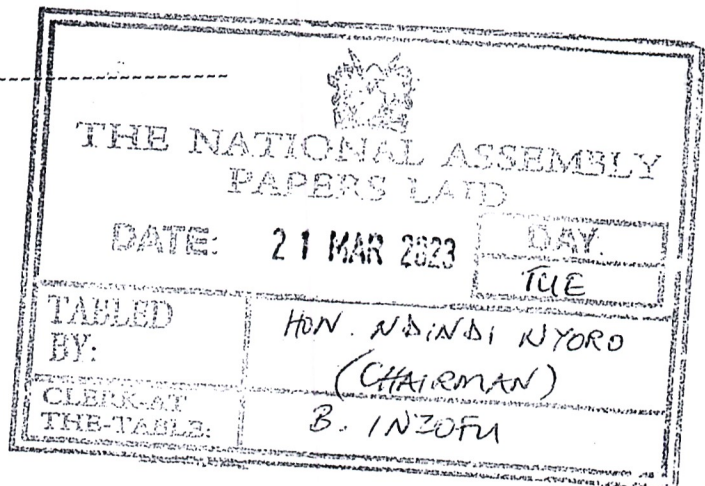 THE NATIONAL ASSEMBLY
PAPERS LAID
DATE: 21 MAR 2023 DAY.
TUE
TABLED
BY: HON. NDINDI NYORO
(CHAIRMAN)
CLERK-AT
THE-TABLE: B. INZOFU